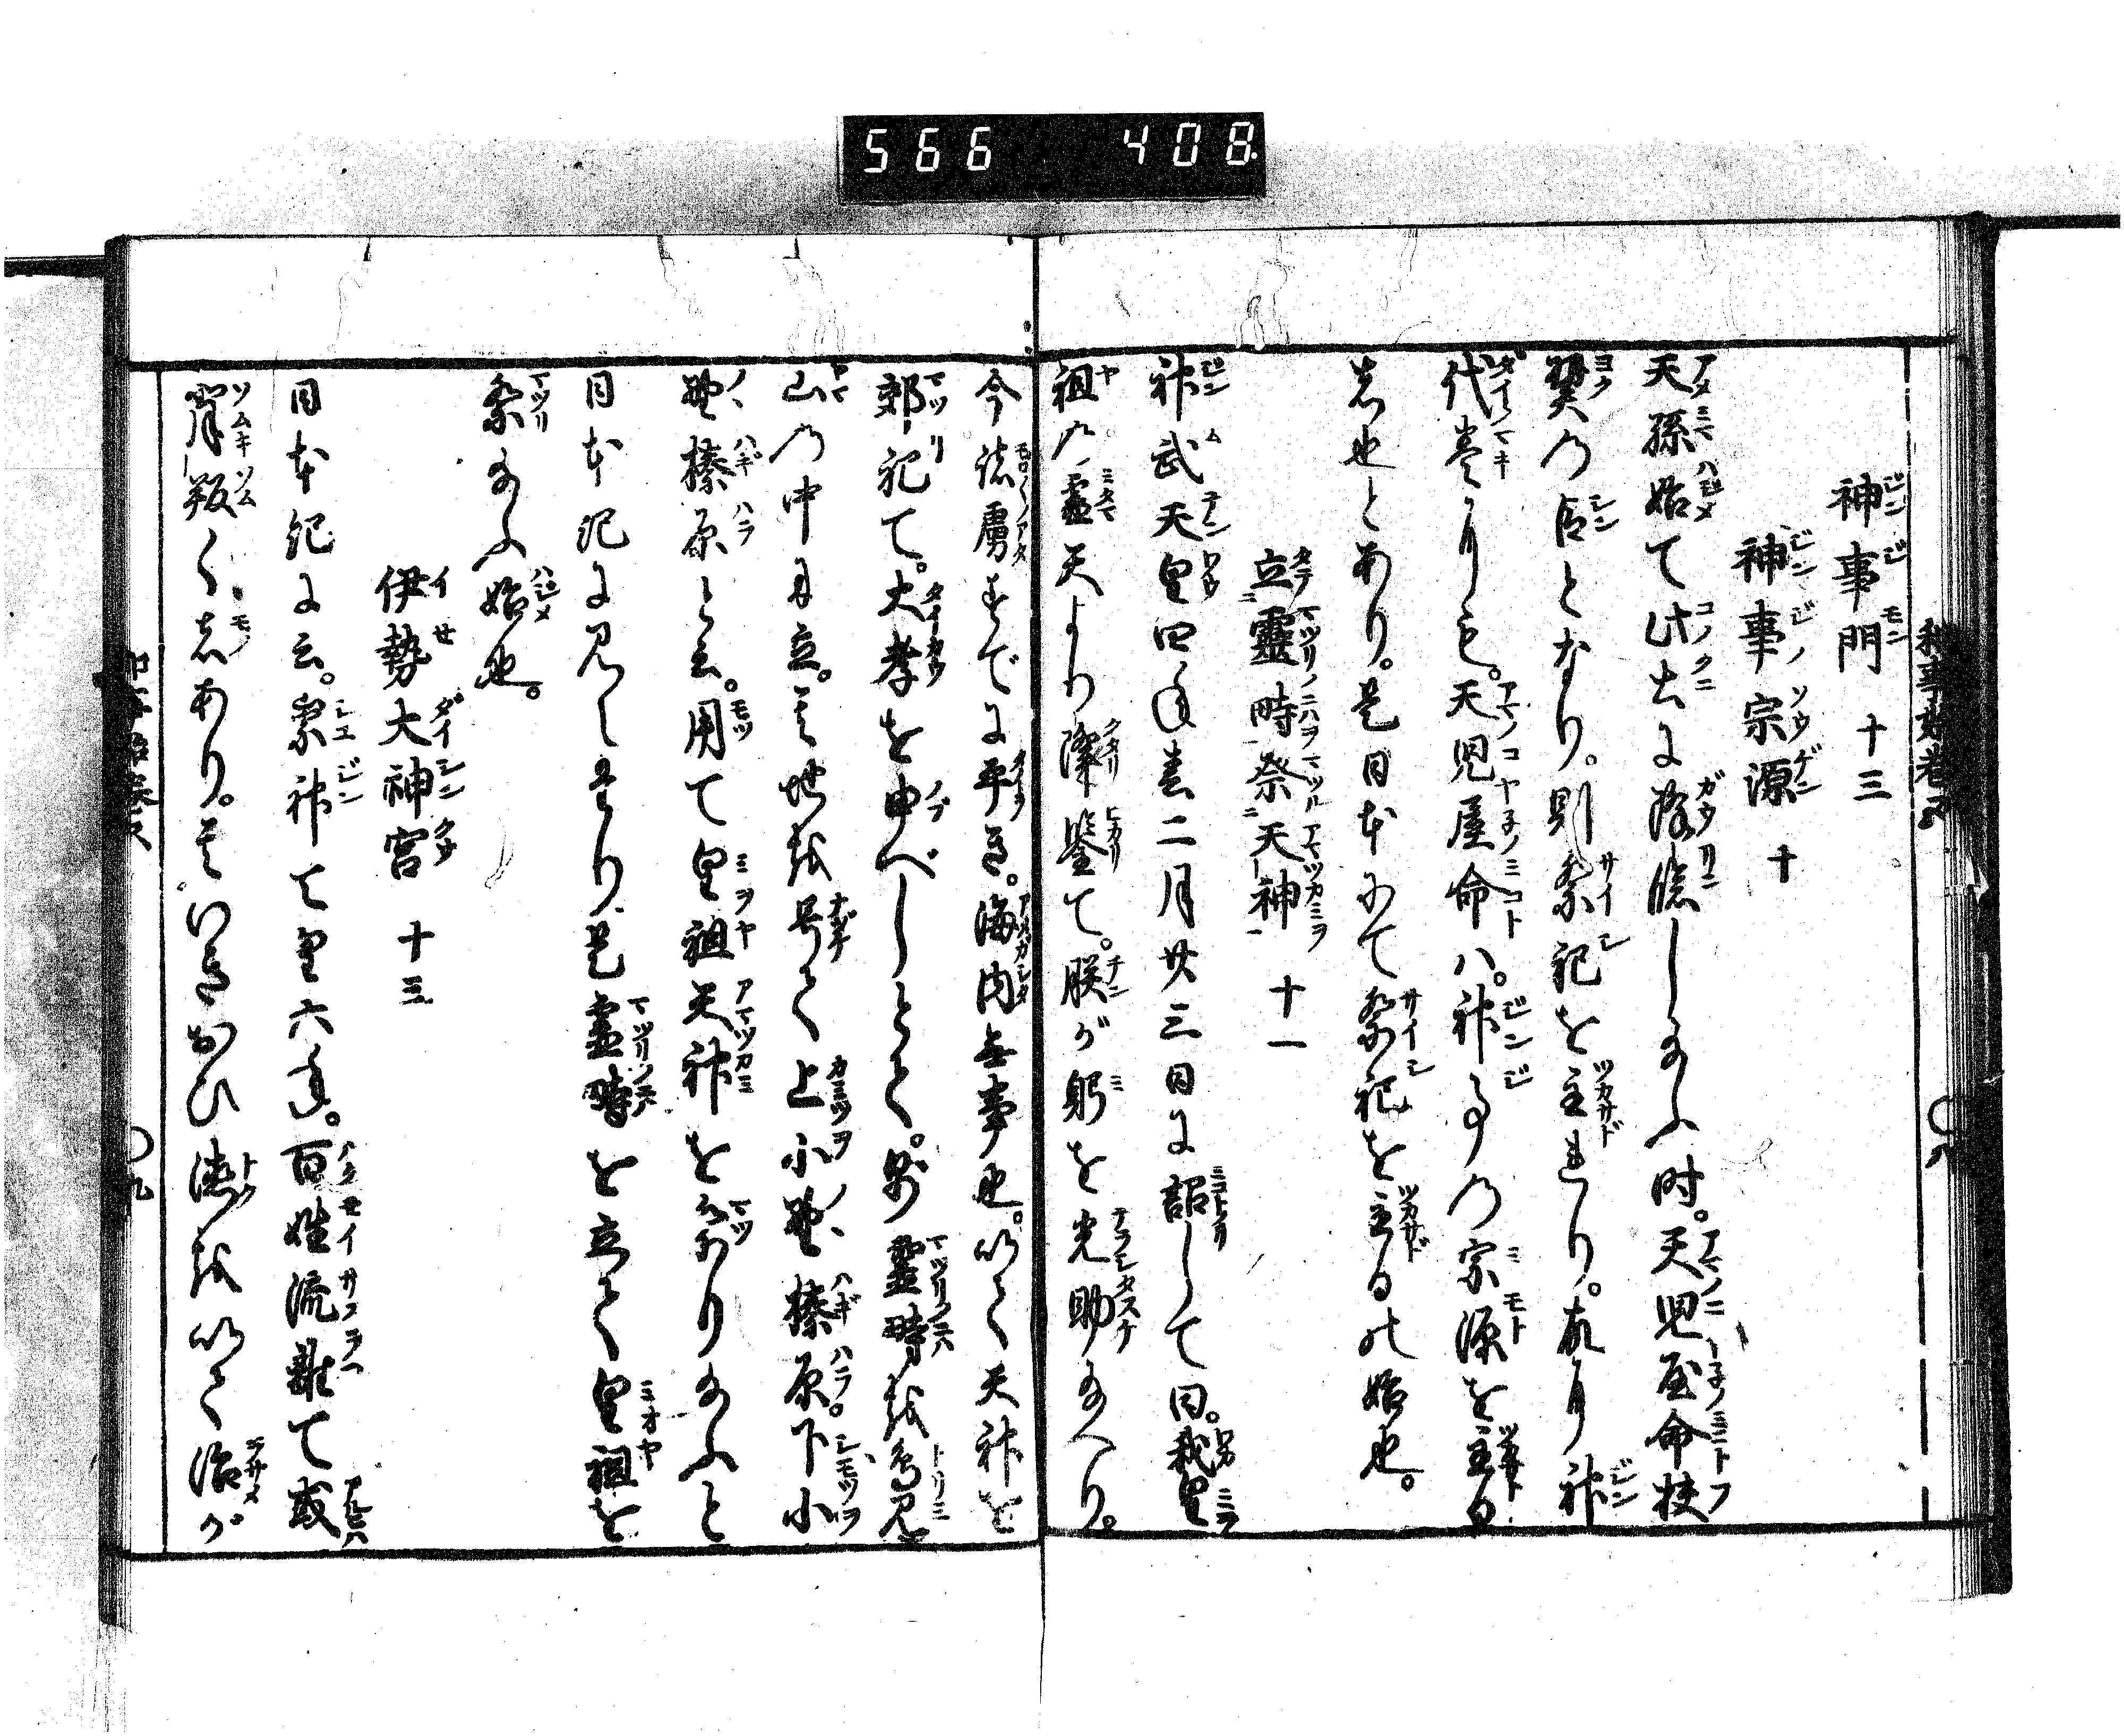 566 408
神事門 十三
神事宗源 十
天孫始て此土に降臨し給ふ時。天児屋命扶
翼の臣となり。則祭祀を主れり。故に神
代巻に曰。天児屋命ハ。神事の宗源を主る
者也とあり。是日本にて祭祀を主るの始也。
立霊畤祭天神 十一
神武天皇四年春二月廿三日に詔して曰。我皇
祖の霊天より降鑒て。朕が躬を光助給へり。
今諸虜すでに平き。海内無事也。以て天神を
郊祀て。大孝を申べしとて。即霊畤を鳥見
山の中に立。其地を号て上小野榛原。下小
野榛原と云。用て皇祖天神を祭り給ふと
日本紀に見えたり是霊畤を立て皇祖を
祭給ふ始也。
伊勢大神宮 十三
日本紀に云。崇神天皇六年。百姓流離て或
背叛く者あり。其いきおひ徳を以て治が